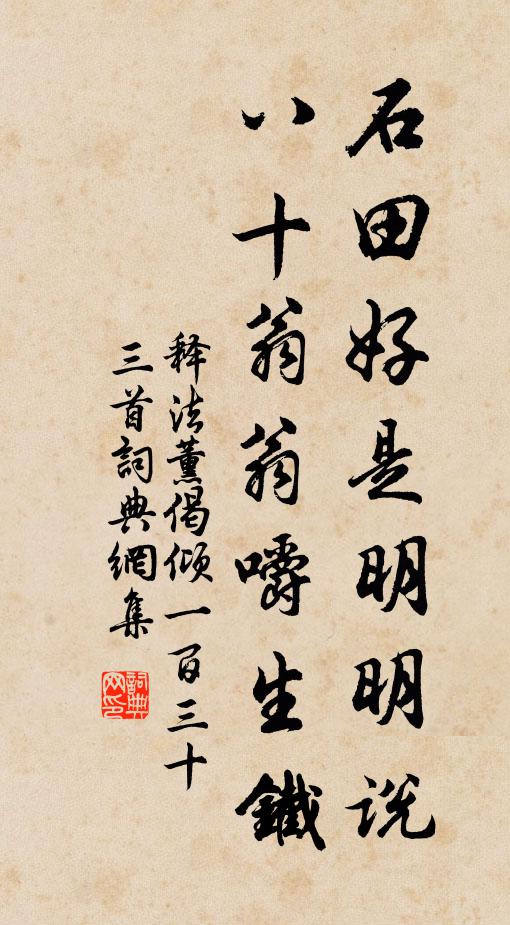 石田好是明明説
八十翁翁嚼生鐵
释法薰偈倾一百三十
三首詞典網集
詞典網印